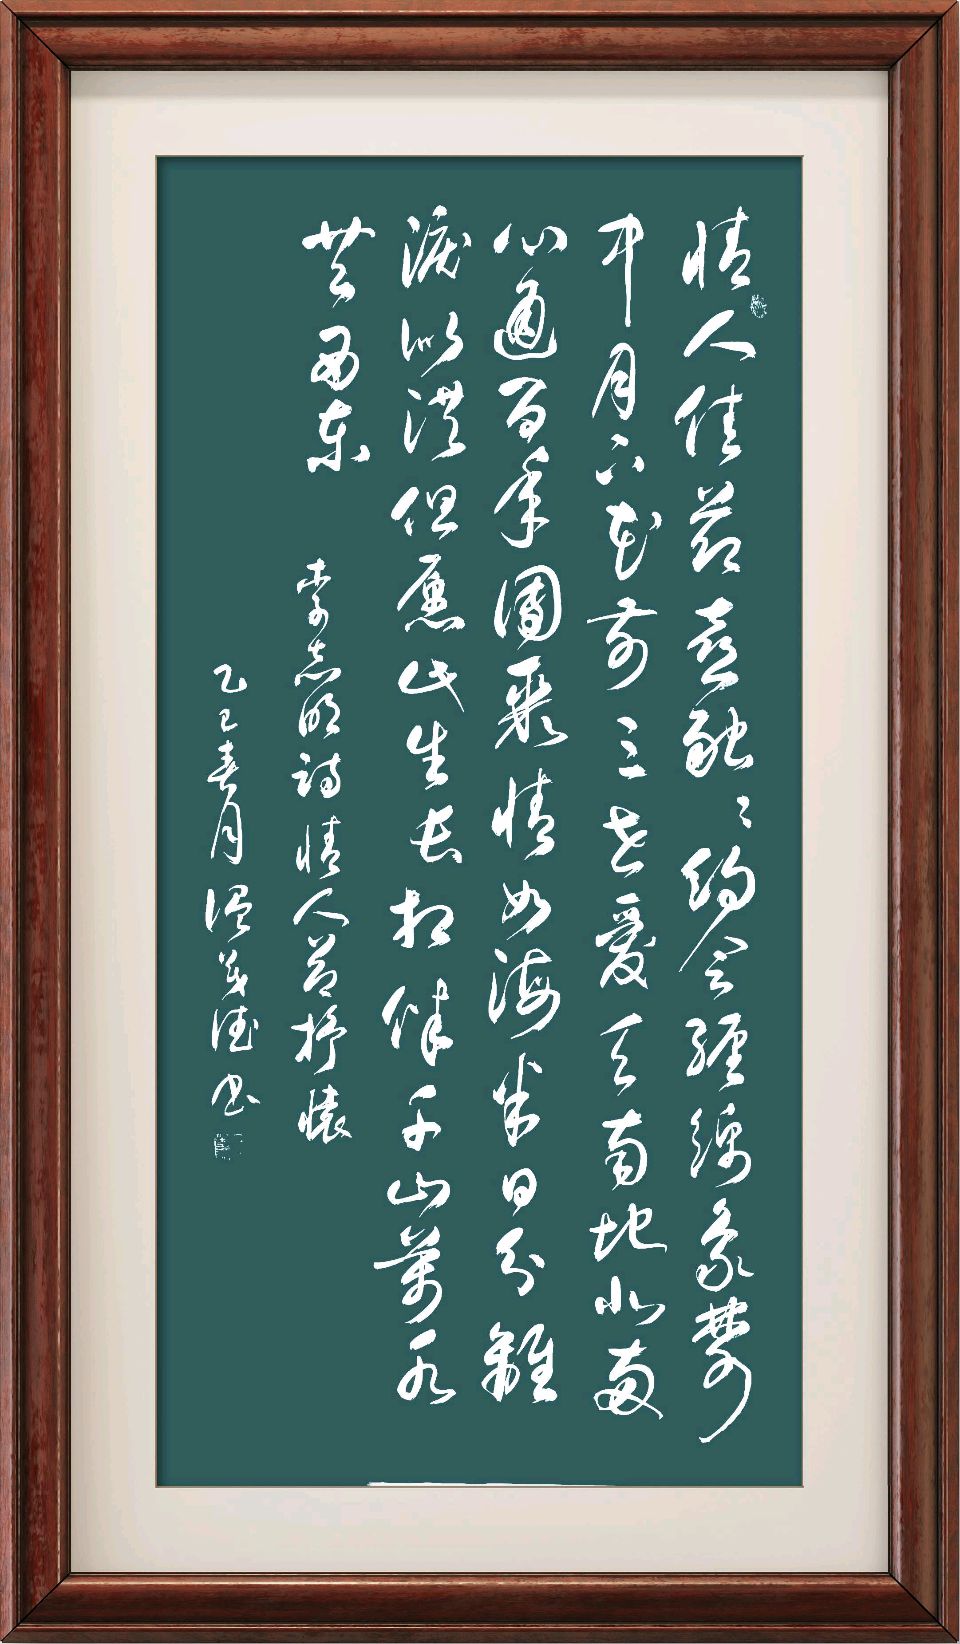 情人佳节喜融々约会缠绵象梦
中月下花前三世爱天南地北两
心通百年团聚情如海半日分離
淚似洪但愿此生长相伴千山萬水
共西东
李志明诗情人节抒怀
乙巳春月温茂德书